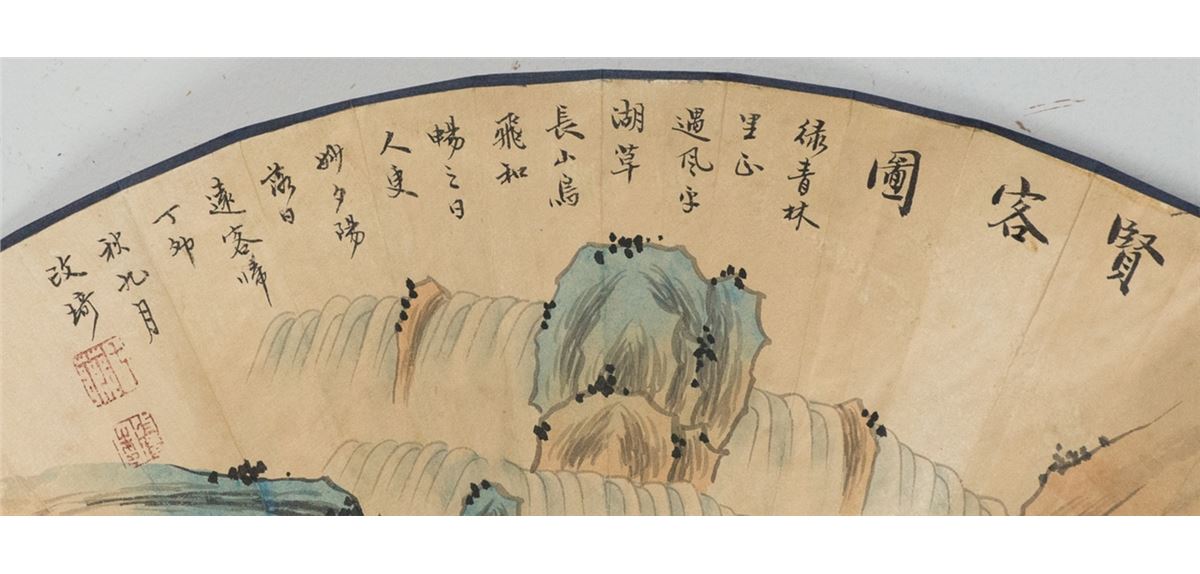 賢客圖
祿青林
里正
遇風平
湖草
長小鳥
飛和
暢之日
人更
妙夕陽
落日
遠客歸
丁卯
秋九月
改琦